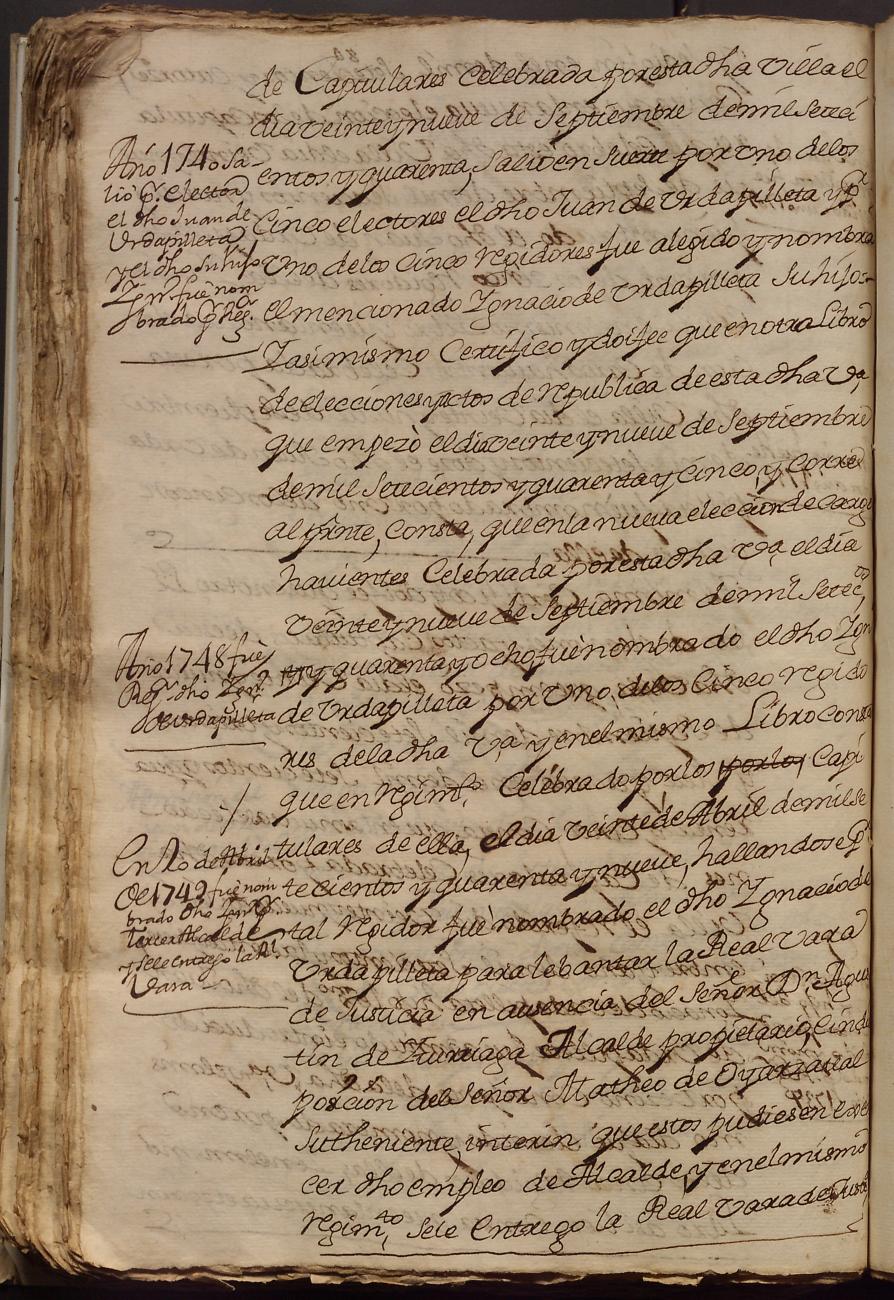 de Capitulares Celebrada por esta dha Villa el
dia veinte y nueve de Septiembre de mil Seteci
entos y quarenta, salio en Suerte por uno de los
Cinco electores el dho Juan de Urdapilleta y pr.
Uno de los Cinco regidores fue elegido y nombra
el mencionado Ygnacio de Urdapilleta Su hijo
Yasimismo Certifico y doi fee que en otro Libro
de elecciones y actos de republica de esta dha Va
que empezò el dia veinte y nueve de Septiembre
de mil Setecientos y quarenta y Cinco, y Corre
al prnte, Consta, que en la nueva eleccion de cargo
havientes Celebrada por esta dha Va, el dia
Veinte y nueve de Septiembre de mil Setectos
y quarenta y ocho fuè nombrado el dho Ygn
de Urdapilleta por Uno, de los Cinco regido
res de la dha Va y en el mismo Libro Consta
que en regimto Celebrado por los por los Capi
tulares de ella, el dia veinte de Abril de mil Se
tecientos y quarenta y nueve, hallandose Pr.
tal regidor fuè nombrado el dho Ygnacio de
Urdapilleta para lebantar la Real Vara
de Justicia en ausencia del Señor Dn Agus
tin de Zurriaga Alcalde propietario, e indis
posicion del Señor Matheo de Oyarzabal
Su theniente, interin que estos pudiesen exer
cer dho empleo de Alcalde, y en el mismo
regimto, Se le Entrego la Real Vara de Justa
Año 1740 Sa-
lio pr. elector
el dho Juan de
Urdapilleta
y el dho Su hijo
Ygno fuè nom
brado pr Regr.
Año 1748 fuè
Regr dho Ygno
de Urdapilleta
En 20 de Abril
de 1749 fuè nom
brado dho Ygno pr.
Tercer Alcalde
y se le entregò la Rl
Vara